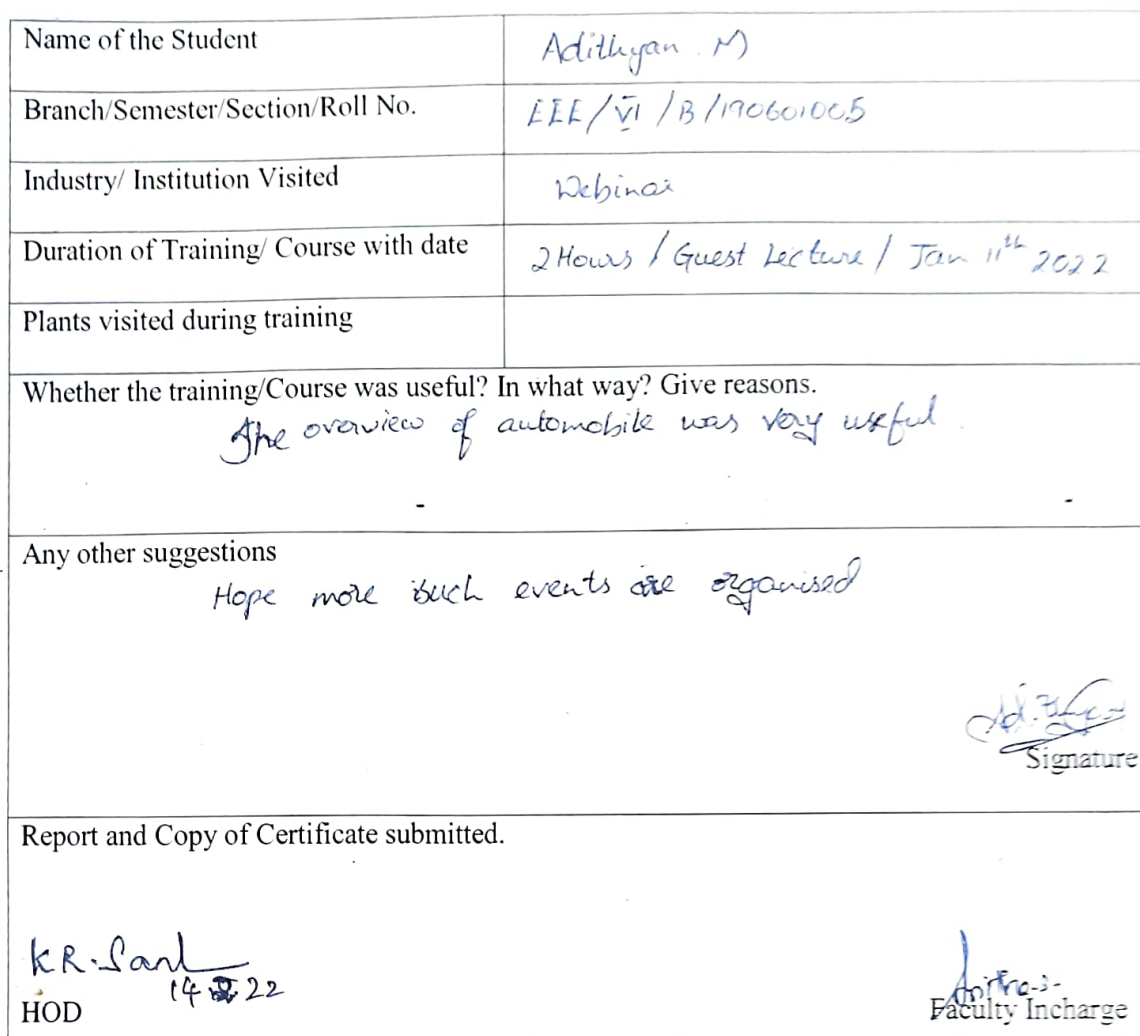 Name of the Student Adithyan . M
Branch/Semester/Section/Roll No. EEE/VI/B/190601005
Industry/ Institution Visited Webinar
Duration of Training/ Course with date 2 Hours / Guest Lecture / Jan 11th 2022
Plants visited during training
Whether the training/Course was useful? In what way? Give reasons.
The overview of automobile was very useful.
Any other suggestions
Hope more such events are organised
Signature
Report and Copy of Certificate submitted.
K.R.
14 22
HOD Faculty Incharge